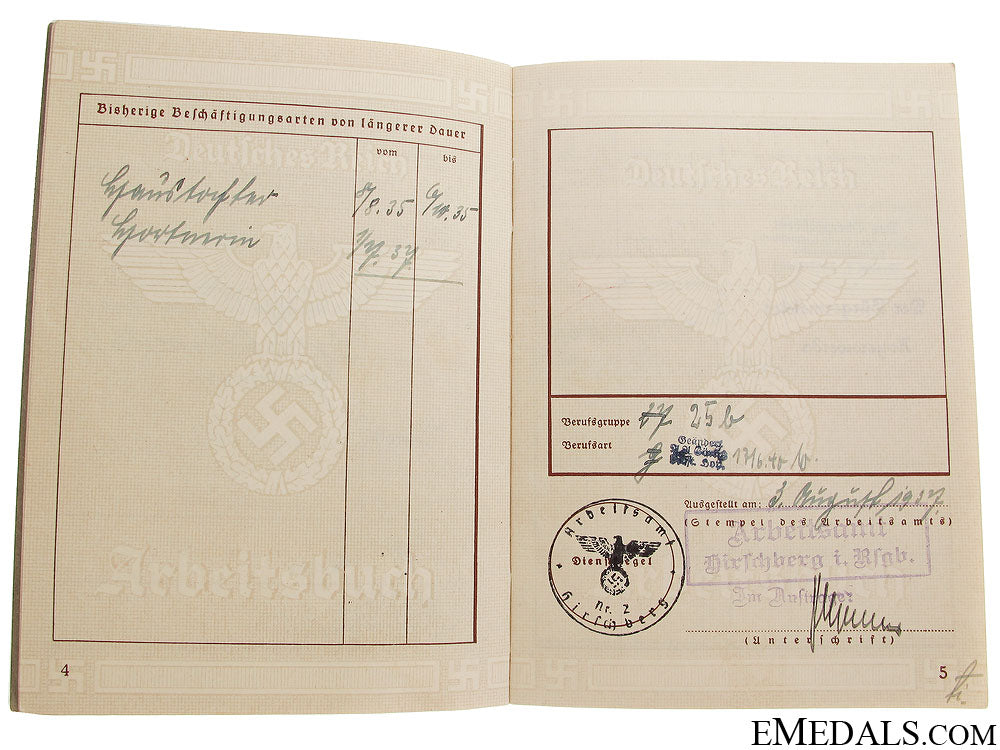 Bisherige Beschäftigungsarten von längerer Dauer
vom bis
Deutsches Reich
Haustochter 8/8. 35 6/10. 35
Hortnerin 37.
Arbeitsbuch
4
Deutsches Reich
Berufsgruppe 17 25 b
Berufsart
Geändert
13/6. 40
Ausgestellt am: 3. August 1937.
(Stempel des Arbeitsamts)
Arbeitsamt
Hirschberg i. Rsgb.
Im Auftrage:
Arbeitsamt
Dienstsiegel
Nr. 2
Hirschberg
(Unterschrift)
5
EMEDALS.COM